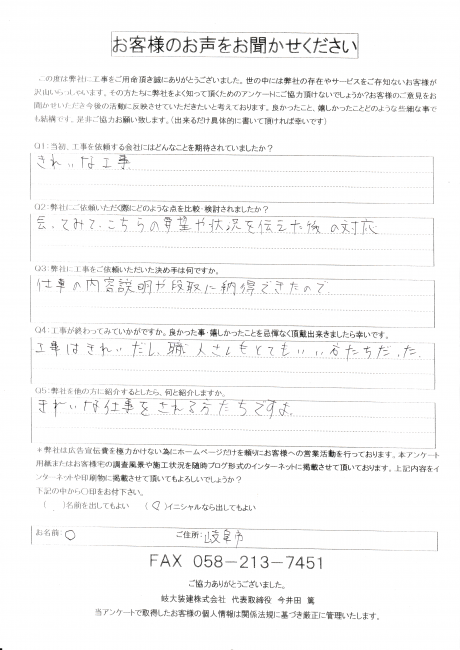 お客様のお声をお聞かせください
この度は弊社に工事をご用命頂き誠にありがとうございました。世の中には弊社の存在やサービスをご存知ないお客様が
沢山いらっしゃいます。その方たちに弊社をよく知って頂くためのアンケートにご協力頂けないでしょうか？お客様のご意見をお
聞かせいただき今後の活動に反映させていただきたいと考えております。良かったこと、嬉しかったことどのような些細な事で
も結構です。是非ご協力お願い致します。（出来るだけ具体的に書いて頂ければ幸いです）
Q1：当初、工事を依頼する会社にはどんなことを期待されていましたか？
きれいな工事
Q2：弊社にご依頼いただく際にどのような点を比較・検討されましたか？
会ってみて、こちらの要望や状況を伝えた後の対応
Q3：弊社に工事をご依頼いただいた決め手は何ですか。
仕事の内容説明や段取に納得できたので、
Q4：工事が終わってみていかがですか。良かった事・嬉しかったことを忌憚なく頂戴出来きましたら幸いです。
工事はきれいだし、職人さんもとてもいい方たちだった。
Q5：弊社を他の方に紹介するとしたら、何と紹介しますか。
きれいな仕事をされる方たちですよ。
＊弊社は広告宣伝費を極力かけない為にホームページだけを頼りにお客様への営業活動を行っております。本アンケート
用紙またはお客様宅の調査風景や施工状況を随時ブログ形式のインターネットに掲載させて頂いております。上記内容をイ
ンターネットや印刷物に掲載させて頂いてもよろしいでしょうか？
下記の中から○印をお付下さい。
（　）名前を出してもよい　（○）イニシャルなら出してもよい
お名前：○　ご住所：岐阜市
FAX 058－213－7451
ご協力ありがとうございました。
岐大装建株式会社 代表取締役 今井田 篤
当アンケートで取得したお客様の個人情報は関係法規に基づき厳正に管理いたします。